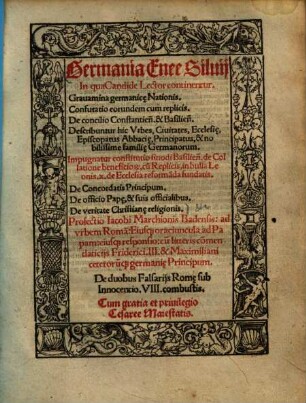 Germania Enee Siluij
In qua Candide Lector continetur.
Grauamina germanicę Nationis.
Confutatio eorundem cum replicis.
De concilio Constantień. & Basilień.
Describuntur hic Vrbes, Ciuitates, Ecclesię,
Episcopatus Abbacię, Principatus, & no
bilissimę familię Germanorum.
Impugnatur constitutio synodi Basilień. de Col
latione beneficiorų, cū Replicis, in bulla Le
onis. x. de Ecclesia reformāda fundatis.
De Concordatis Principum.
De officio Papę, & suis officialibus.
De veritate Christianę religionis.
Profectio Iacobi Marchionis Badensis: ad
vrbem Romā: Eiusq; oratiuncula ad Pa
pam: eiusq; responsio: cū litteris cōmen
daticijs Friderici. III. & Maximiliani
ceterorūq; germanię Principum.
De duobus Falsarijs Romę sub
Innocentio. VIII. combustis.
Cum gratia et priuilegio
Cesaree Maiestatis.